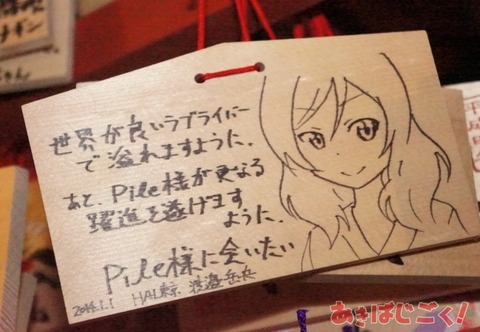 世界が良いラブライバー
で溢れますように、
あと、Pile様が更なる
躍進を遂げます
ように、
Pile様に会いたい
2014.1.1 HAL東京
あきばじごく!